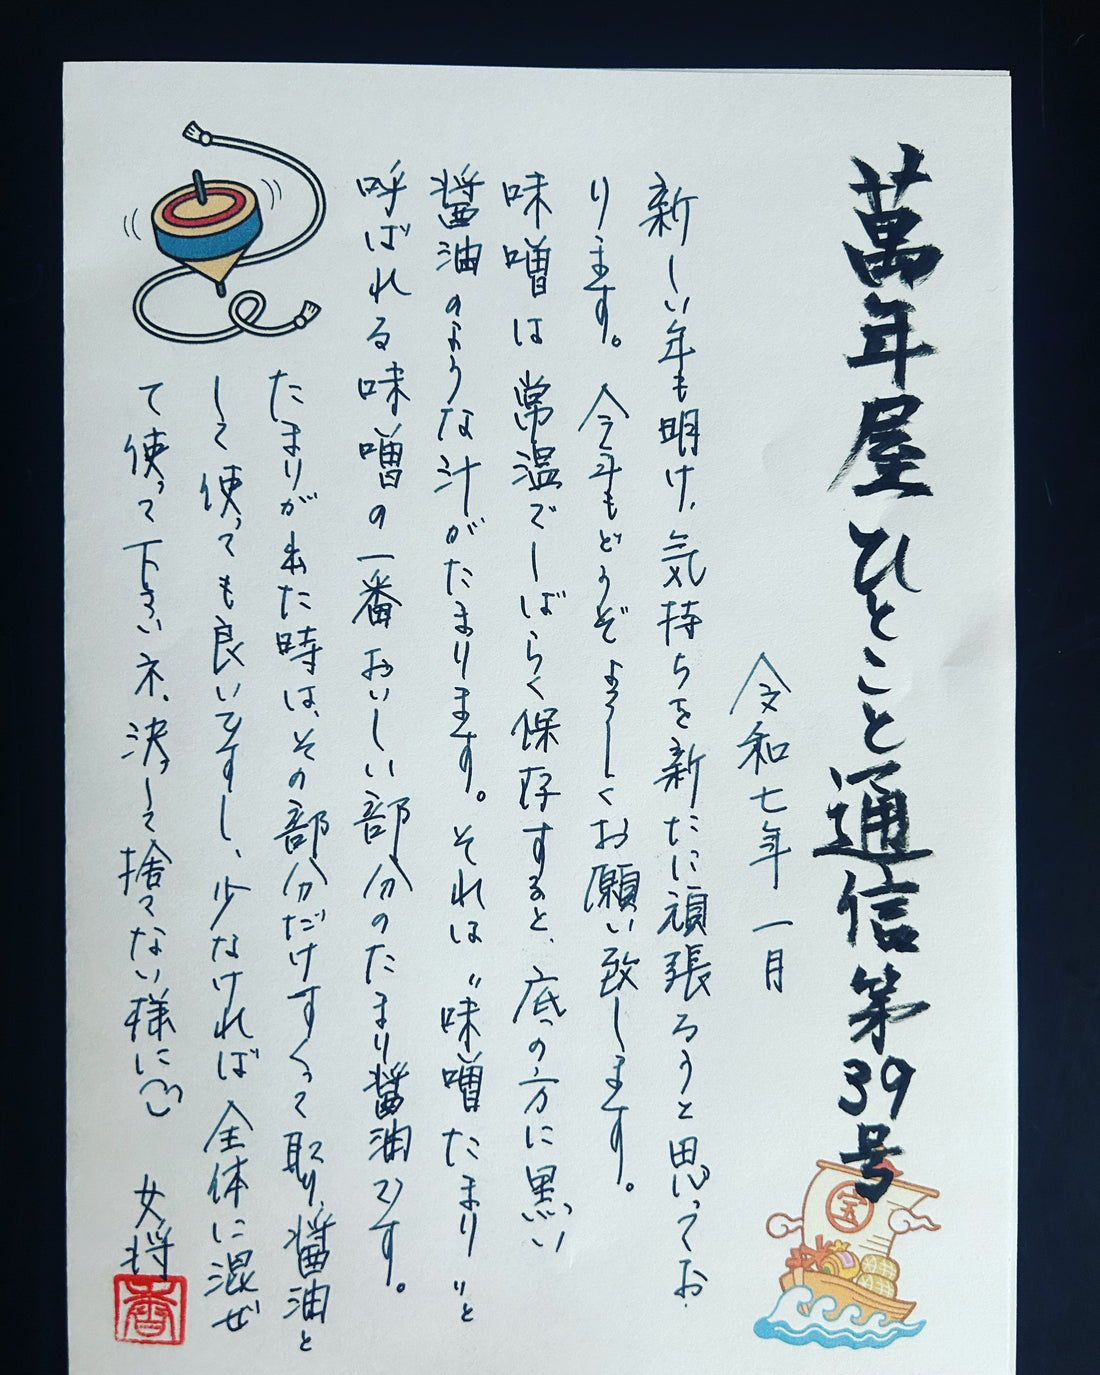 萬年屋ひとこと通信第39号
令和七年 一月
新しい年も明け、気持ちを新たに頑張ろうと思ってお
ります。今年もどうぞよろしくお願い致します。
味噌は常温でしばらく保存すると、底の方に黒い
醤油のような汁がたまります。それは〝味噌たまり〟と
呼ばれる味噌の一番おいしい部分のたまり醤油です。
たまりが出た時は、その部分だけすくって取り、醤油と
して使っても良いですし、少なければ全体に混ぜ
て使って下さいネ、決して捨てない様に
女将
香
宝